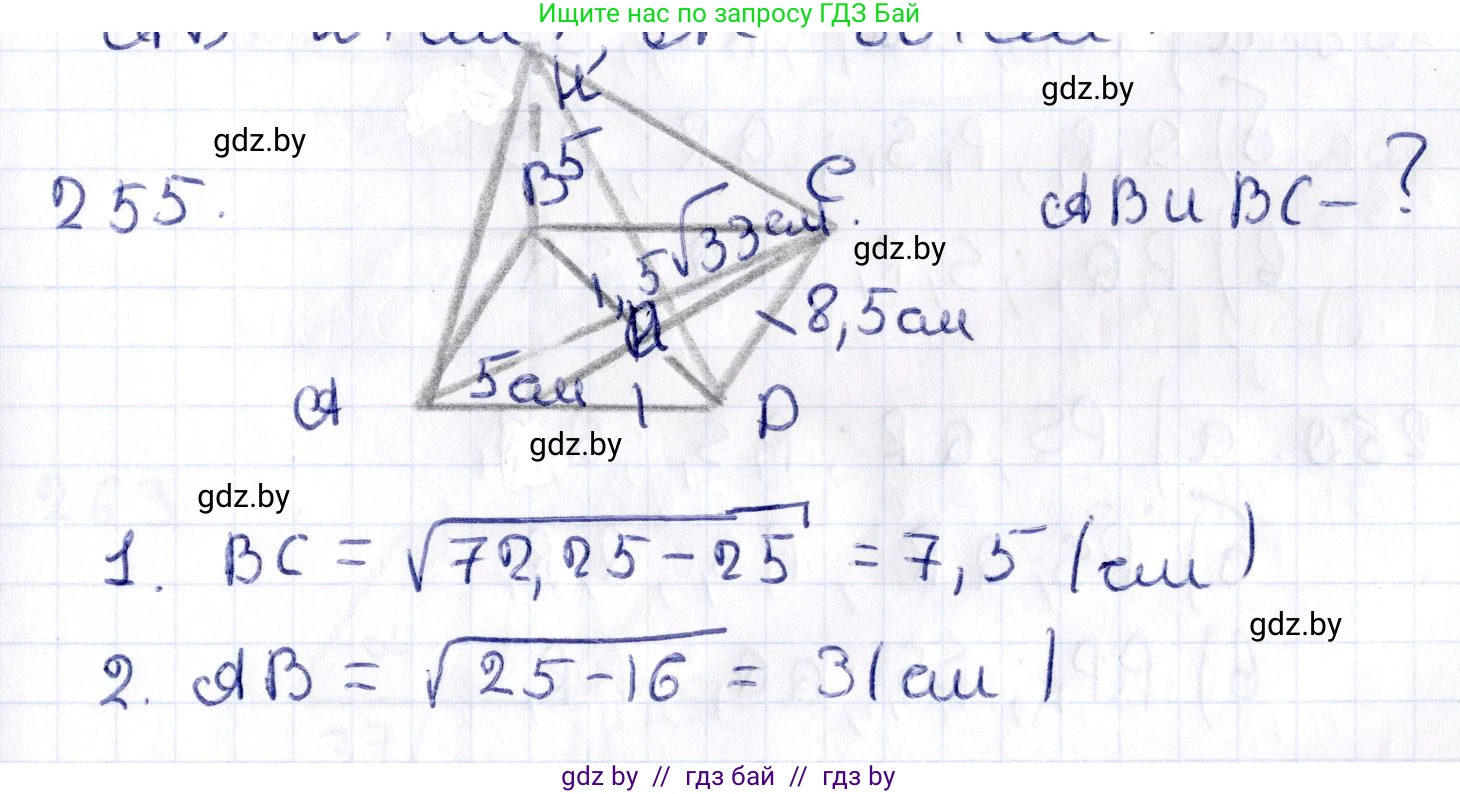 Ищите нас по запросу ГДЗ Бай
K
gdz.by
gdz.by
255.
B
5
C
AB и BC - ?
1,5√33 см.
gdz.by
8,5 см
A
5 см
D
gdz.by
gdz.by
1. BC = √72,25 - 25 = 7,5 (см)
gdz.by
2. AB = √25 - 16 = 3 (см)
gdz by // гдз бай // гдз by